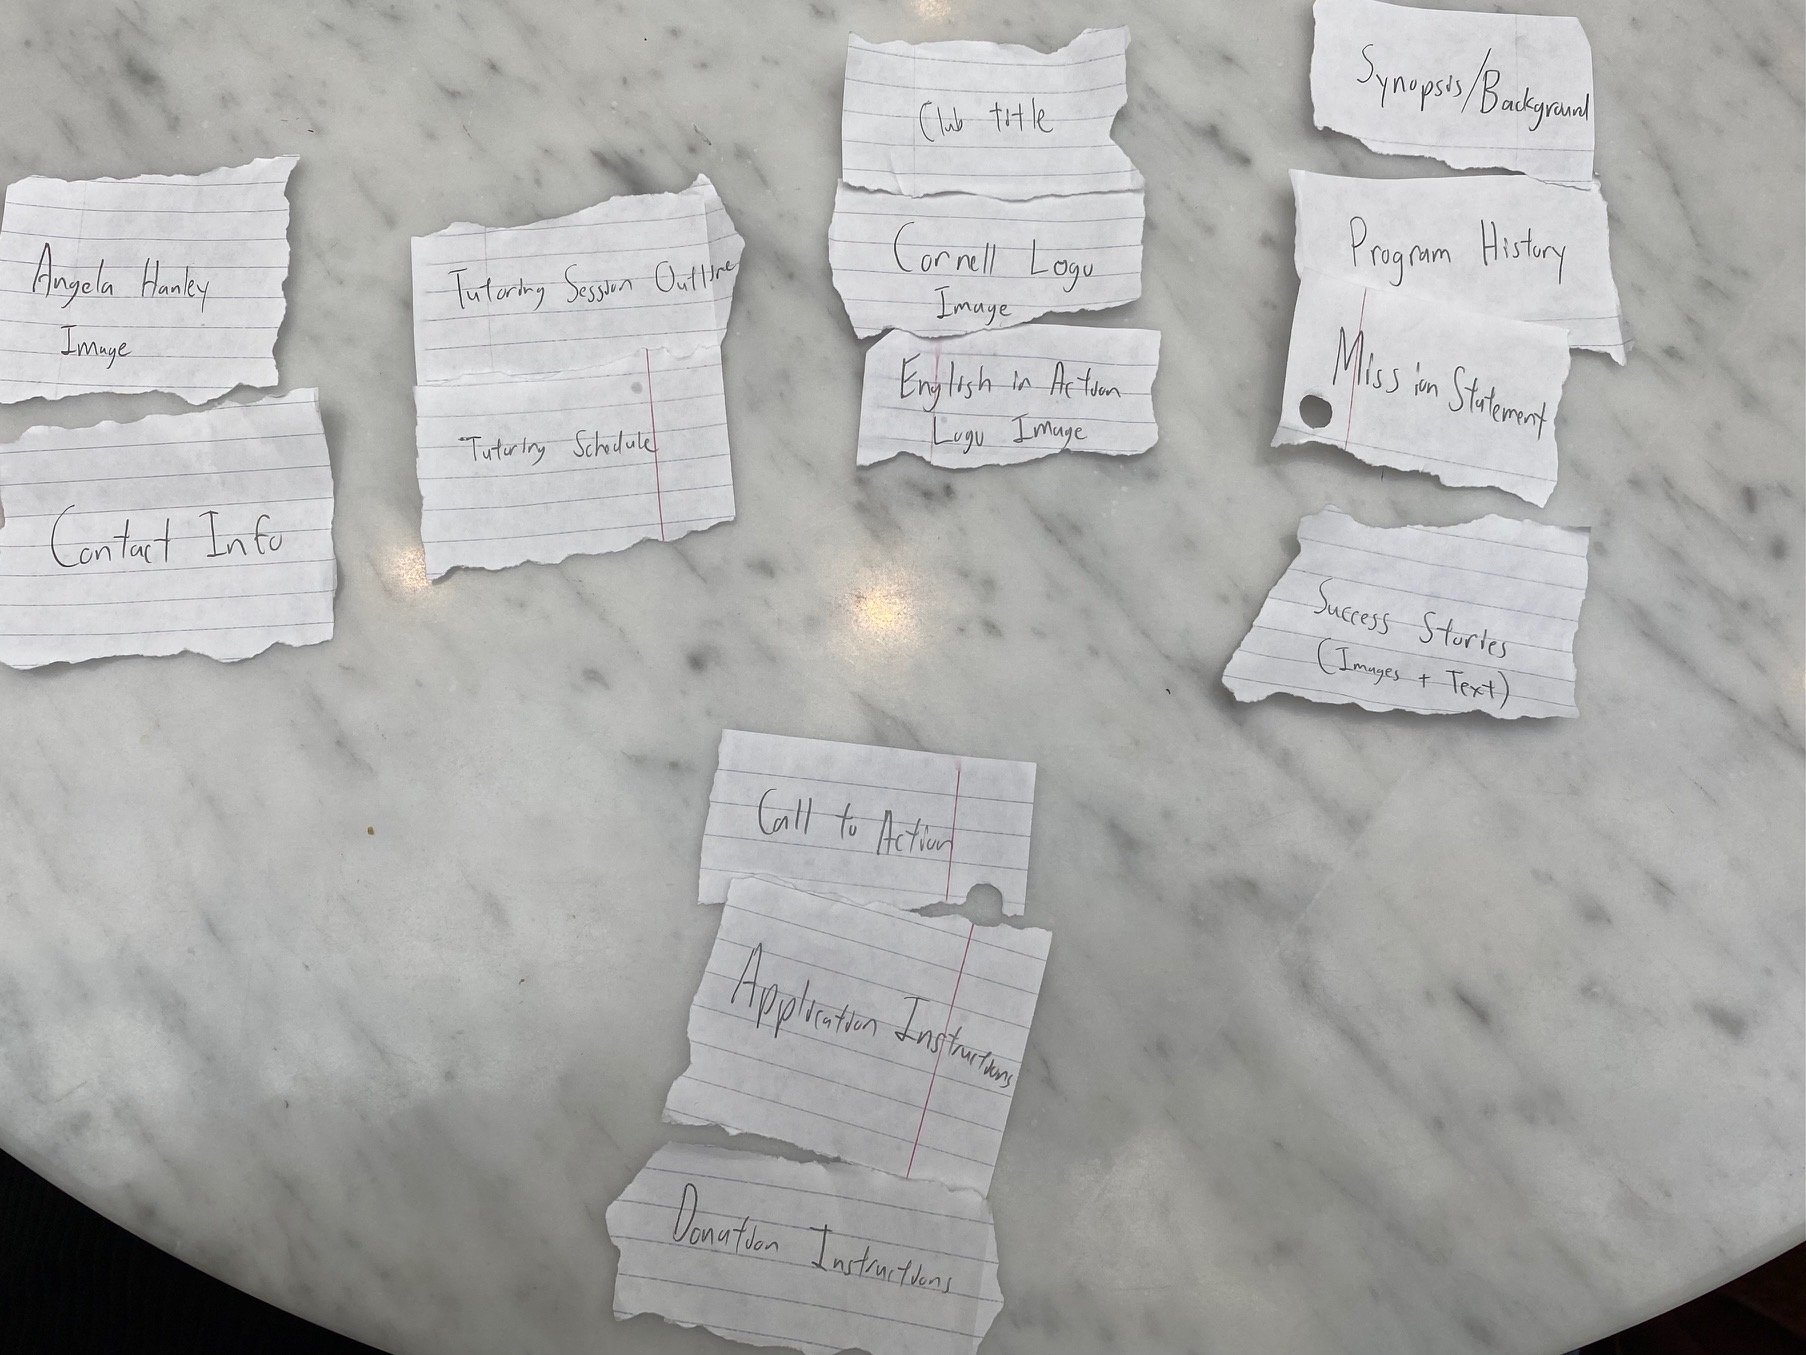 Angela Hanley
Image
Contact Info
Tutoring Session Outline
Tutoring Schedule
Club title
Cornell Logo
Image
English in Action
Logo Image
Synopsis/Background
Program History
Mission Statement
Success Stories
(Images + Text)
Call to Action
Application Instructions
Donation Instructions